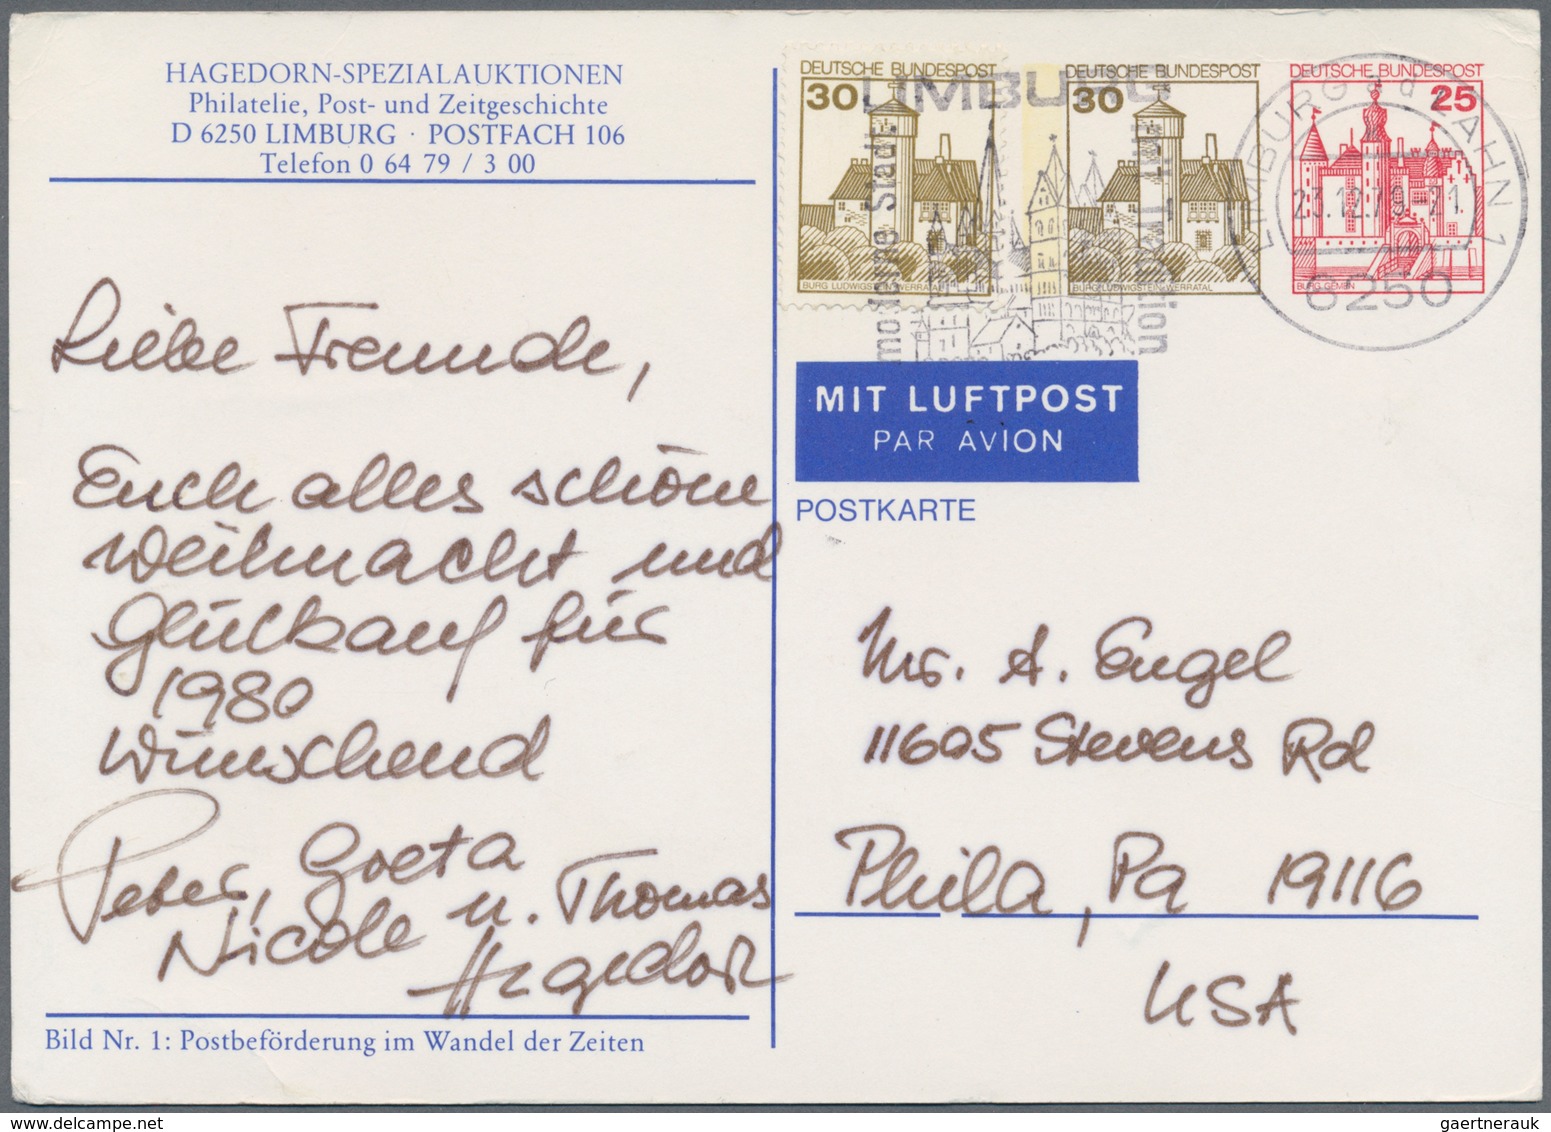 HAGEDORN-SPEZIALAUKTIONEN
Philatelie, Post- und Zeitgeschichte
D 6250 LIMBURG · POSTFACH 106
Telefon 0 64 79 / 3 00
Liebe Freunde,
Euch alles schöne
Weihnacht und
Glückauf für
1980
wünschend
Peter, Goeta
Nicole u. Thomas
Hagedorn
Bild Nr. 1: Postbeförderung im Wandel der Zeiten
DEUTSCHE BUNDESPOST
30
BURG LUDWIGSTEIN·WERRATAL
DEUTSCHE BUNDESPOST
30
BURG LUDWIGSTEIN·WERRATAL
DEUTSCHE BUNDESPOST
25
BURG GEMEN
LIMBURG
moderne Stadt
mit Tradition
LIMBURG a d LAHN 1
23.12.79.-21
6250
MIT LUFTPOST
PAR AVION
POSTKARTE
Mr. A. Engel
11605 Stevens Rd
Phila, Pa 19116
USA
gaertnerauk